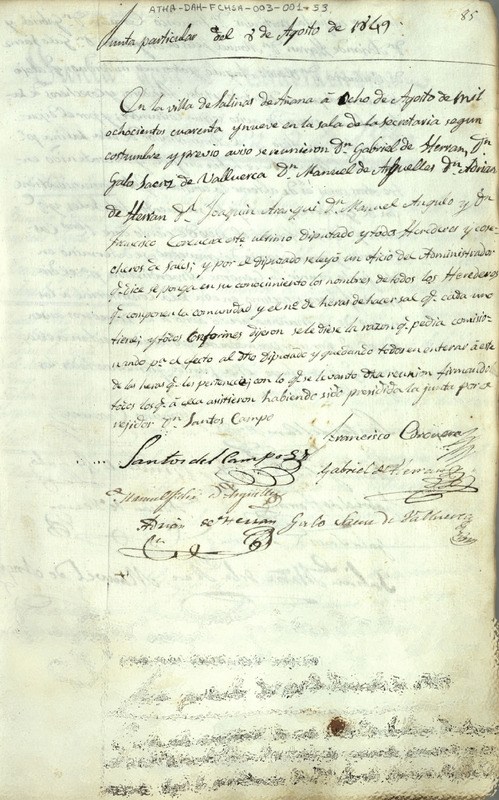 ATHA-DAH-FCMSA-003-001-53
85
Junta particular del 8 de Agosto de 1849.
En la villa de Salinas de Añana á ocho de Agosto de mil
ochocientos cuarenta y nueve en la sala de la secretaria segun
costumbre y previo aviso se reunieron Dn Gabriel de Herran, Dn
Galo Saenz de Valluerca Dn Manuel de Arguelles Dn Adrian
de Herran Dn Joaquin Arangui Dn Manuel Angulo y Dn
Francisco Corcuera este ultimo diputado y todos Herederos y cose-
cheros de sales; y por el diputado se leyó un oficio del Administrador
qe dice se ponga en su conocimiento los nombres de todos los Herederos
qe componen la comunidad y el no de heras de hacer sal qe cada uno
tiene; y todos conformes dijeron se le diese la razon qe pedia comisio-
nando pa el efecto al dho Diputado y quedando todos en enterar á este
de las heras qe les pertenecen; con lo qe se levantó dha reunion firmando
todos los qe á ella asistieron habiendo sido presidida la junta por el
rejidor Dn Santos Campo
Santos del Campo Francisco Corcuera
Manuel Felix de Arguelles Gabriel de Herran
Adrian de Herran Galo Saenz de Valluerca